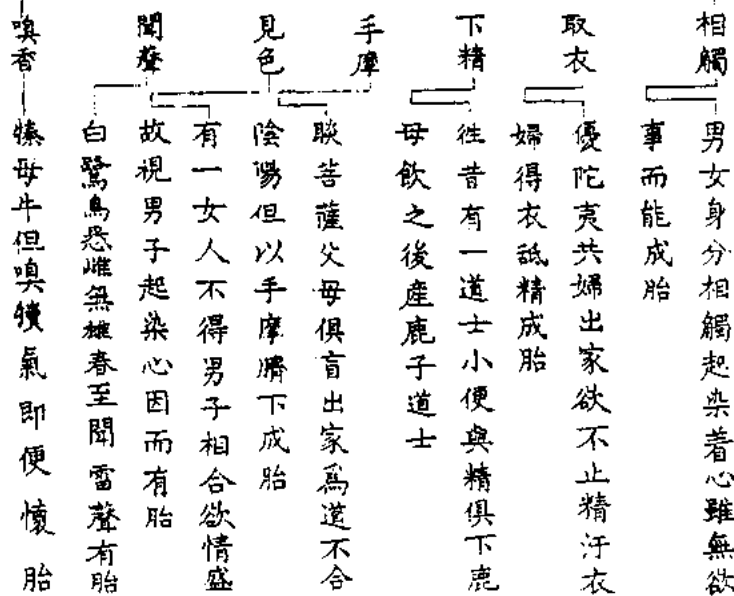 相觸
男女身分相觸起染着心雖無欲
事而能成胎
取衣
優陀夷共婦出家欲不止精汙衣
婦得衣舐精成胎
下精
徃昔有一道士小便與精俱下鹿
母飲之後產鹿子道士
手摩
睒菩薩父母俱盲出家爲道不合
陰陽但以手摩臍下成胎
見色
有一女人不得男子相合欲情盛
故視男子起染心因而有胎
聞聲
白鷺鳥悉雌無雄春至聞雷聲有胎
嗅香
㹀母牛但嗅犢氣即便懷胎